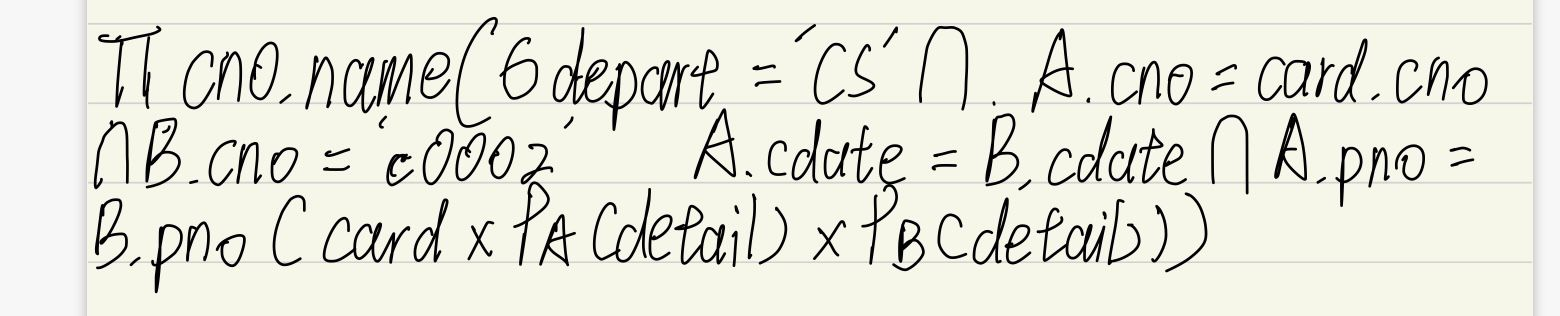 π cno.name(σ depart = 'CS' ∩ A.cno = card.cno
∩ B.cno = 'c0002' A.cdate = B.cdate ∩ A.pno =
B.pno (card x ρA (detail) x ρB (detail)))